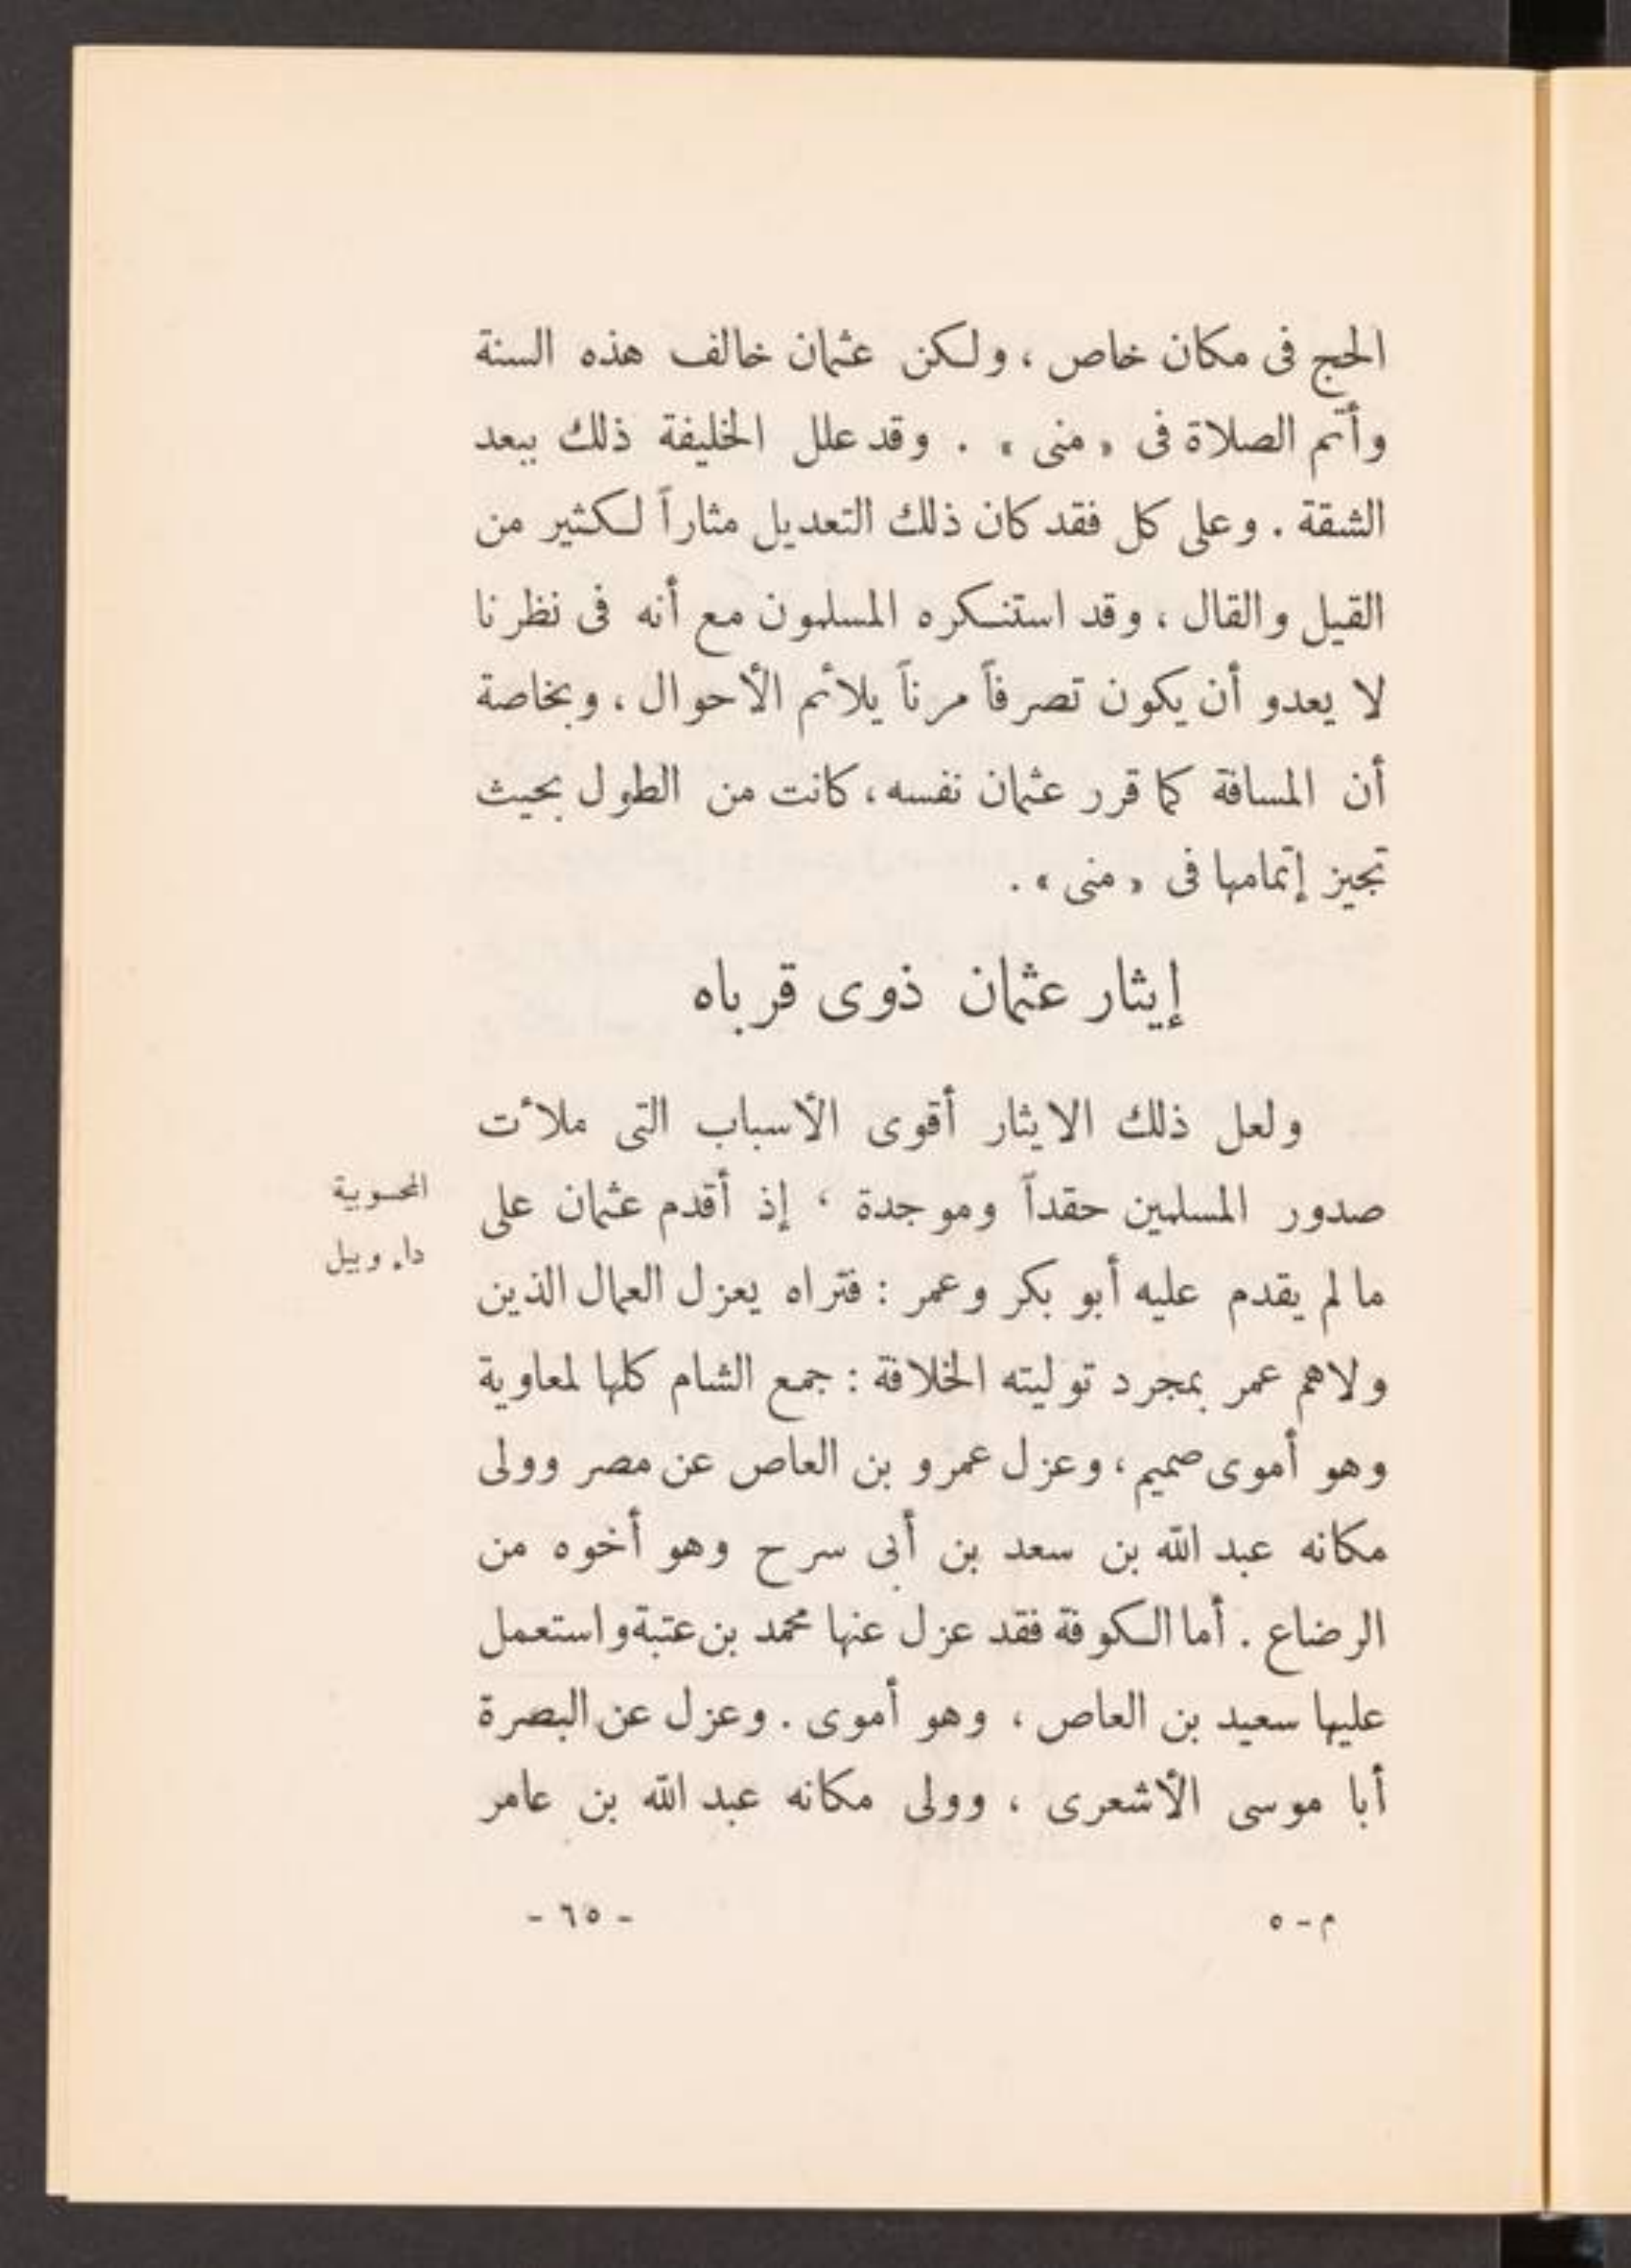 الحج فى مكان خاص ، ولكن عثمان خالف هذه السنة
وأتم الصلاة فى « منى » . وقد علل الخليفة ذلك ببعد
الشقة . وعلى كل فقد كان ذلك التعديل مثاراً لكثير من
القيل والقال ، وقد استنكره المسلمون مع أنه فى نظرنا
لا يعدو أن يكون تصرفاً مرناً يلائم الأحوال ، وبخاصة
أن المسافة كما قرر عثمان نفسه ، كانت من الطول بحيث
تجيز إتمامها فى « منى » .
إيثار عثمان ذوى قرباه
ولعل ذلك الايثار أقوى الأسباب التى ملأت
صدور المسلمين حقداً وموجدة ، إذ أقدم عثمان على
المحسوبية
داء وبيل
ما لم يقدم عليه أبو بكر وعمر : فتراه يعزل العمال الذين
ولاهم عمر بمجرد توليته الخلافة : جمع الشام كلها لمعاوية
وهو أموى صميم ، وعزل عمرو بن العاص عن مصر وولى
مكانه عبد الله بن سعد بن أبى سرح وهو أخوه من
الرضاع . أما الكوفة فقد عزل عنها محمد بن عتبة واستعمل
عليها سعيد بن العاص ، وهو أموى . وعزل عن البصرة
أبا موسى الأشعرى ، وولى مكانه عبد الله بن عامر
م - ٥
- ٦٥ -